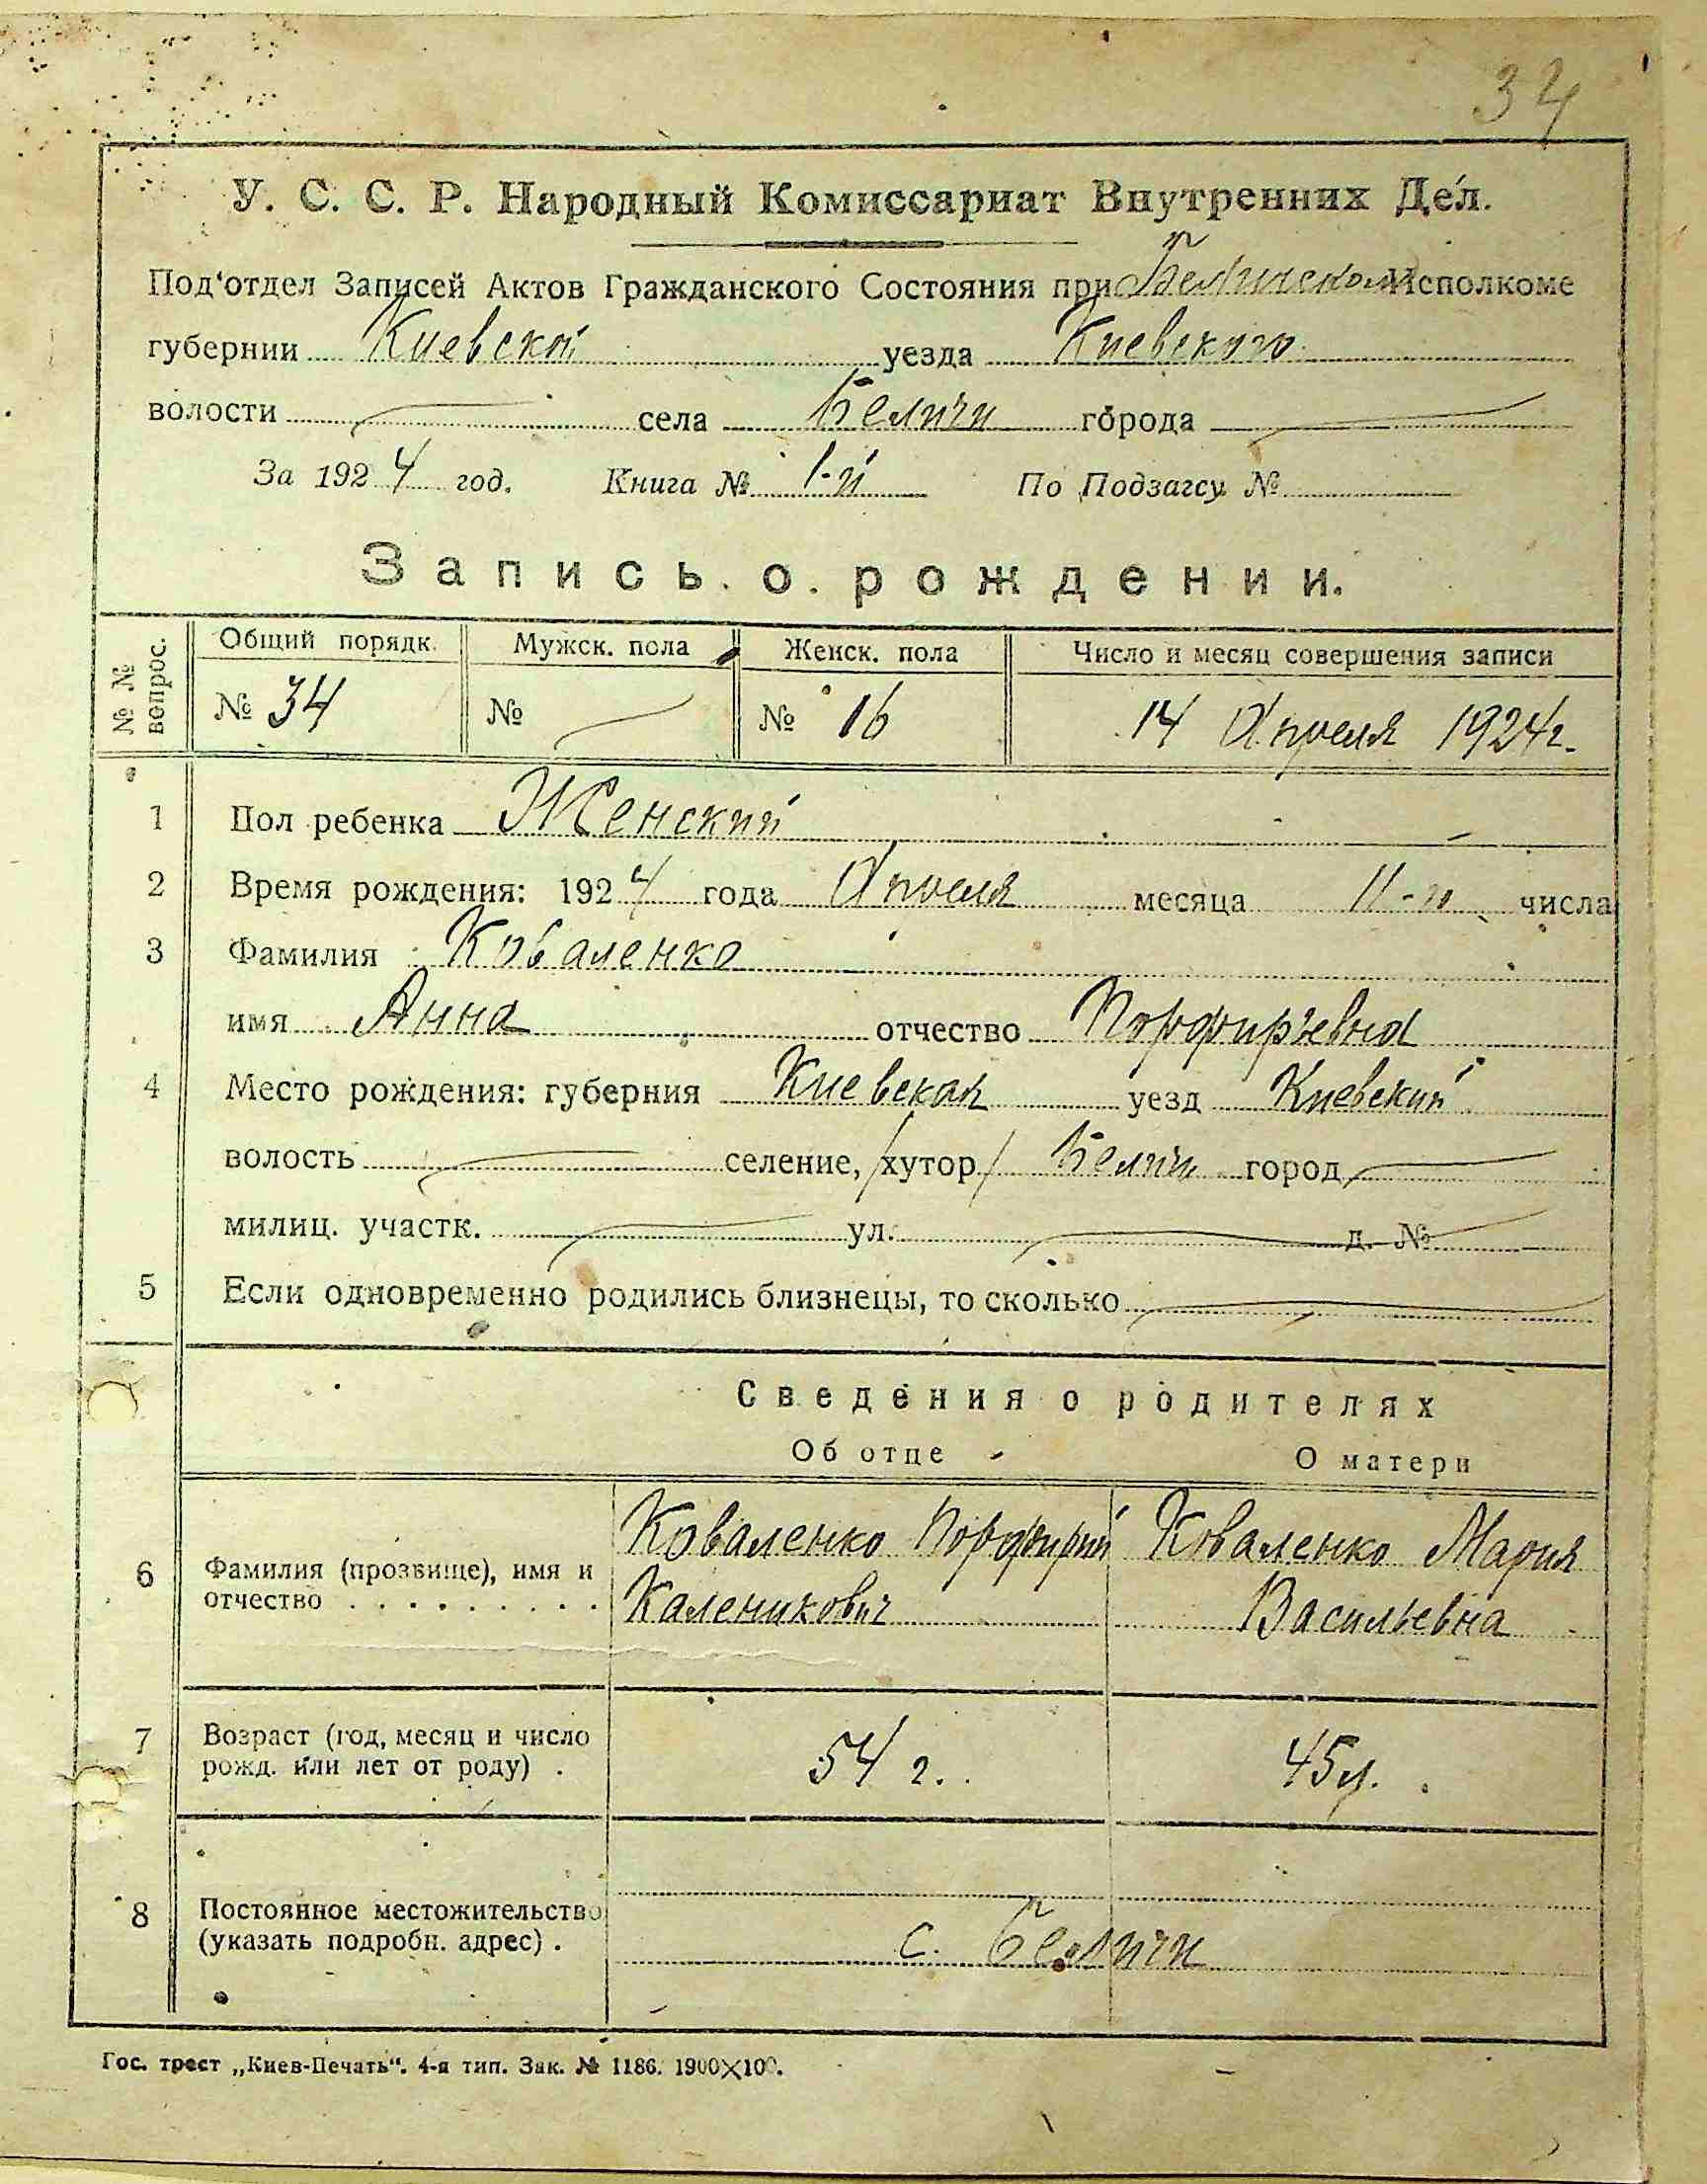 34
У. С. С. Р. Народный Комиссариат Внутренних Дел.
Под'отдел Записей Актов Гражданского Состояния при Беличском Исполкоме
губернии Киевской уезда Киевского
волости села Беличи города
За 1924 год. Книга № 1-й По Подзагсу №
Запись о рождении.
№№ вопрос. Общий порядк. Мужск. пола Женск. пола Число и месяц совершения записи
№ 34 № № 16 14 Апреля 1924 г.
1 Пол ребенка Женский
2 Время рождения: 1924 года Апреля месяца 11-го числа
3 Фамилия Коваленко
имя Анна отчество Порфирьевна
4 Место рождения: губерния Киевская уезд Киевский
волость селение, /хутор/ Беличи город
милиц. участк. ул. д. №
5 Если одновременно родились близнецы, то сколько
Сведения о родителях
Об отце О матери
Коваленко Порфирий Коваленко Мария
6 Фамилия (прозвище), имя и
отчество . . . . . . . . . Каленикович Васильевна
7 Возраст (год, месяц и число
рожд. или лет от роду) . 54 г. 45 л.
8 Постоянное местожительство
(указать подробн. адрес) . с. Беличи
Гос. трест „Киев-Печать“. 4-я тип. Зак. № 1186. 1900×100.